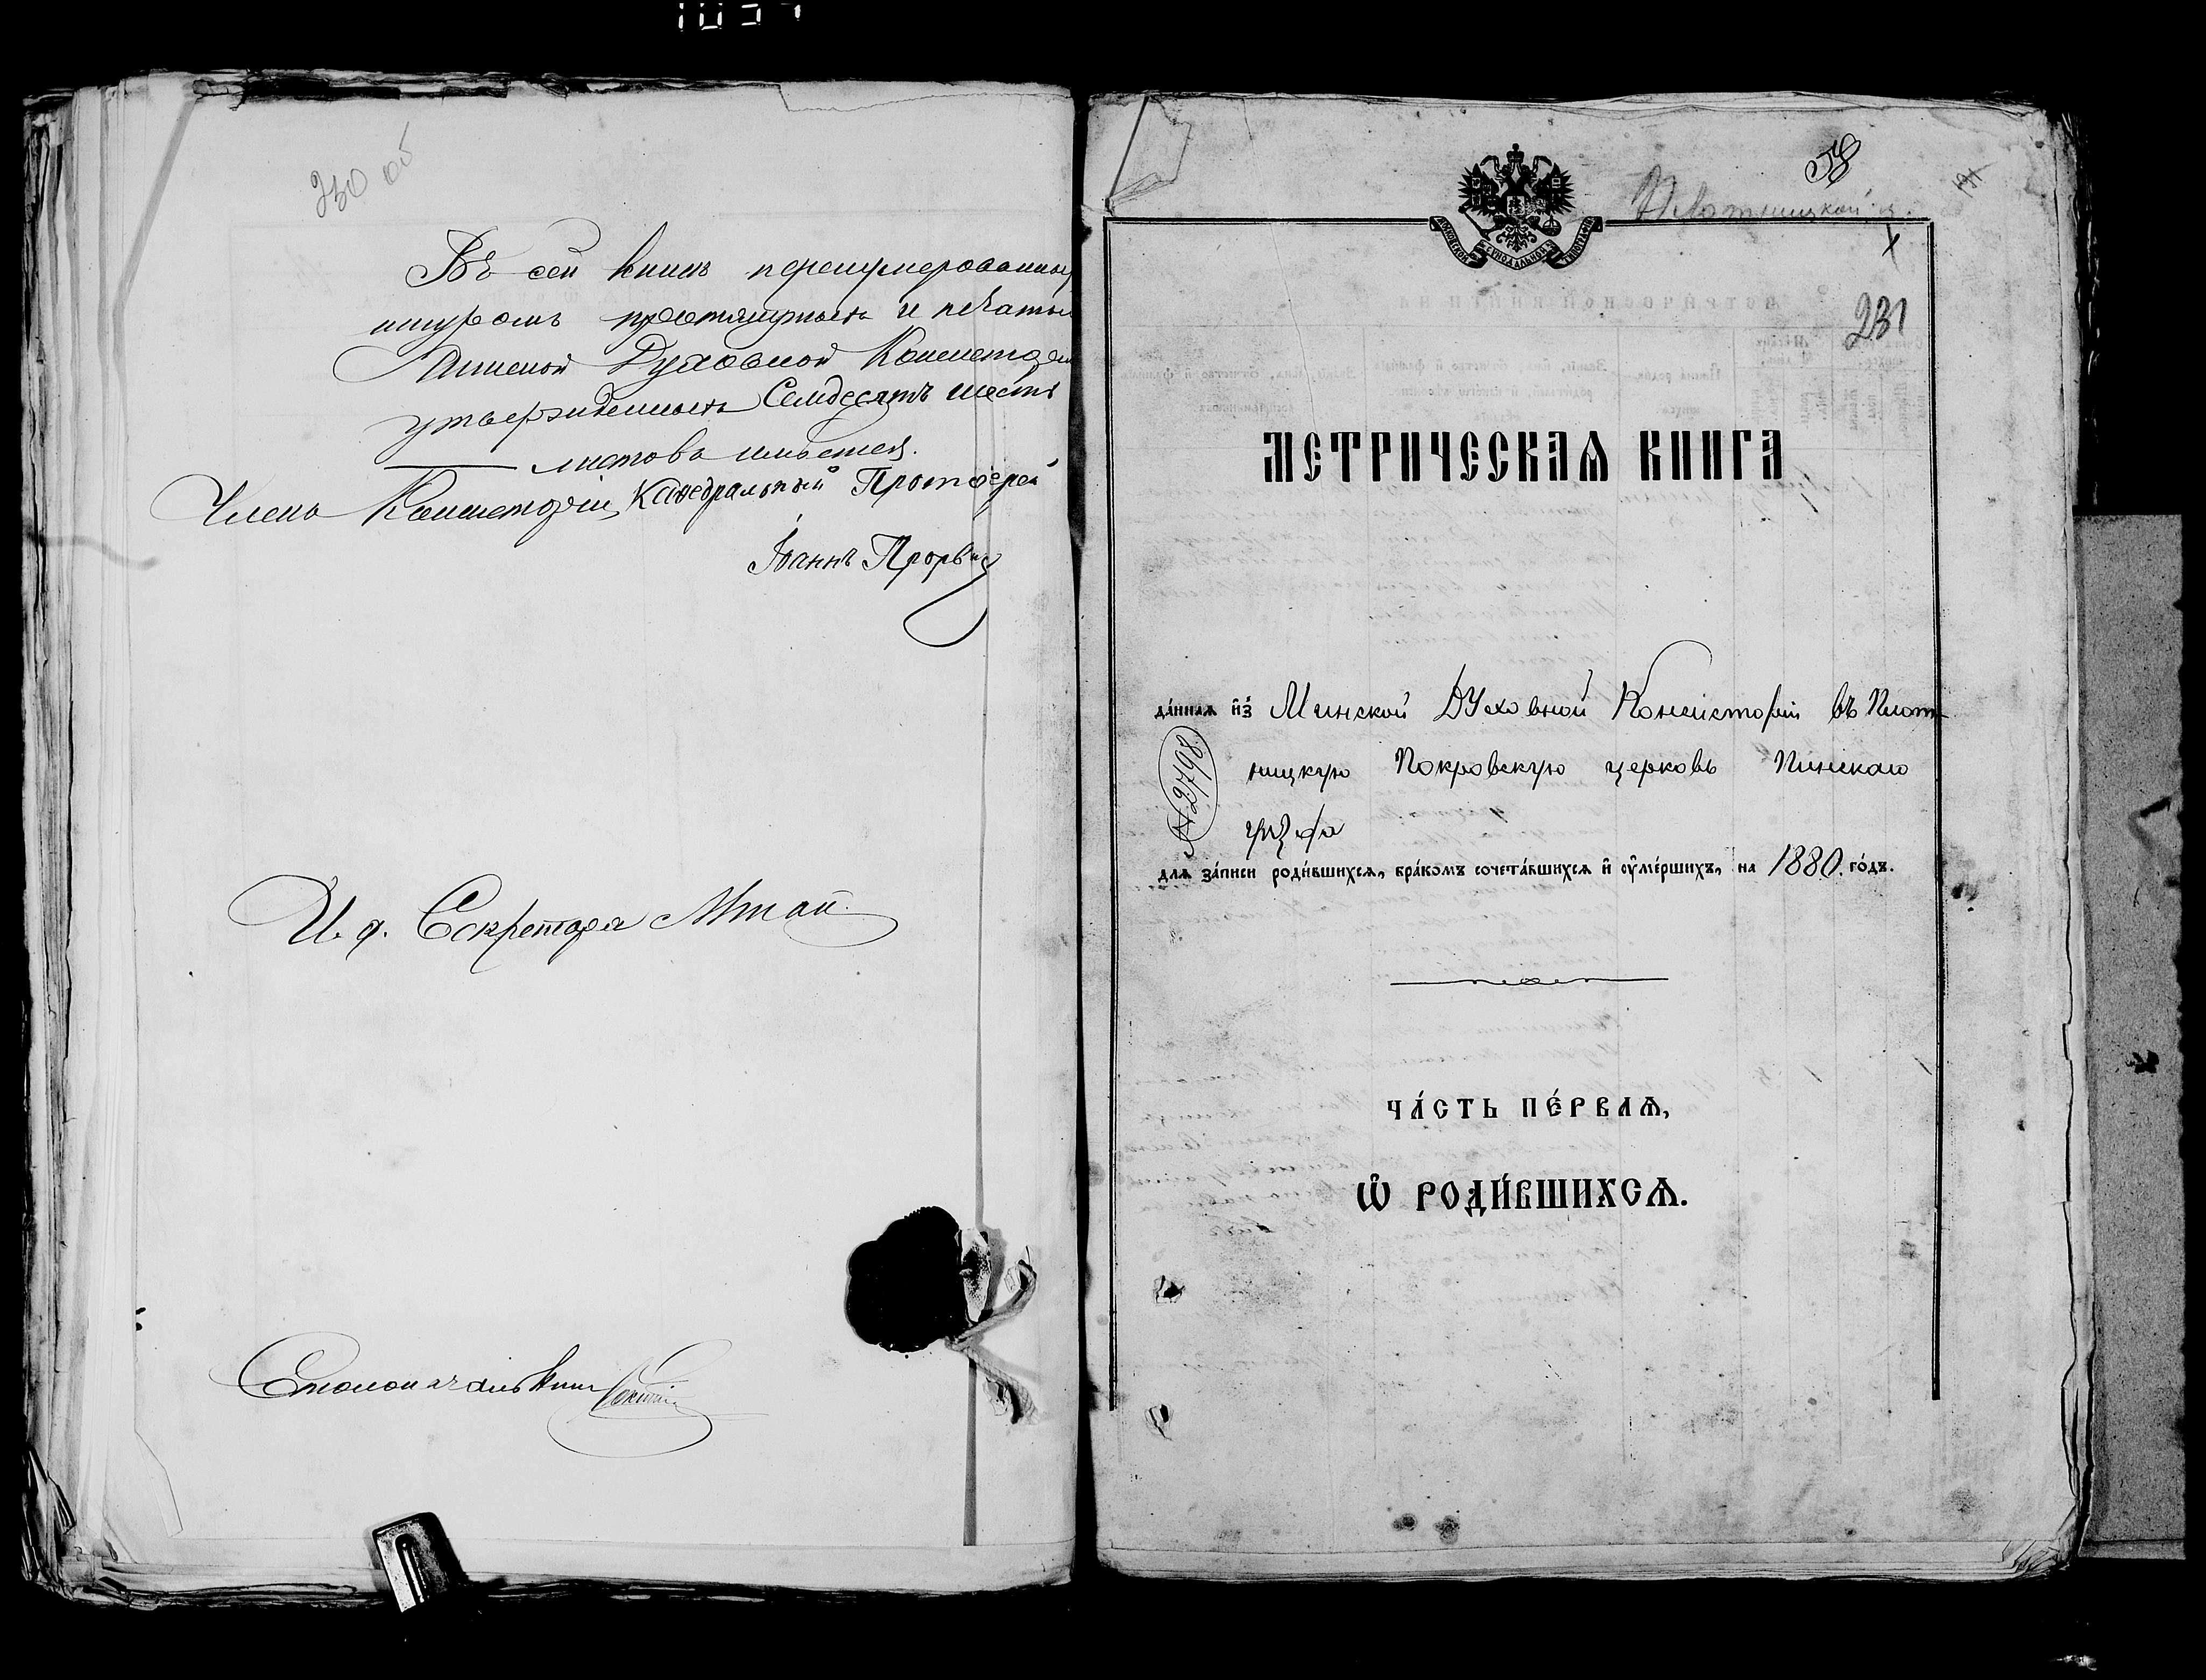 230 об
Въ сей книгѣ перенумерованныхъ
шнуромъ протянутыхъ и печатью
Минской Духовной Консисторіи
утвержденныхъ Семдесятъ шесть
листовъ имѣется.
Членъ Консисторіи, Каѳедральный Протоіерей
Іоаннъ
И. д. Секретаря
Столоначальникъ
Плотницкой ц.
231
МОСКОВСКОЙ СѴНОДАЛЬНОЙ ТИПОГРАФІИ
МЕТРИЧЕСКАѦ КНИГА
да́ннаѧ и҆з̾ Минской Духовной Консисторіи въ Плот-
ницкую Покровскую церковь Пинскаго
уѣзда
№ 2798
длѧ за́писи роди́вшихсѧ, бра́комъ сочета́вшихсѧ и҆ ᲂу҆ме́ршихъ, на 1880. го́дъ.
ЧА́СТЬ ПЕ́РВАѦ,
Ѡ҆ РОДИ́ВШИХСѦ.